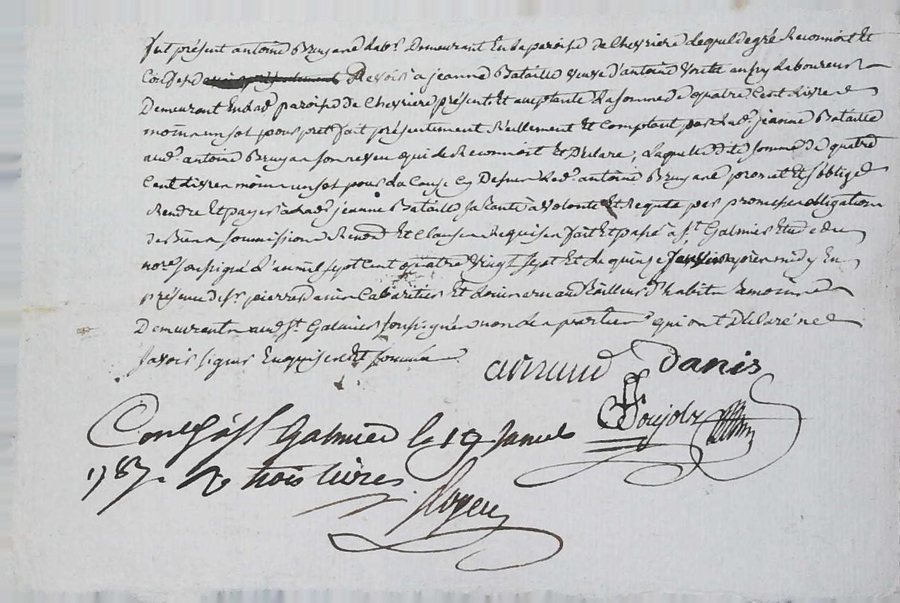 fut présent antoine Bruyand lab.r Demeurant En la paroisse de Chevriere lequel de gré Reconnoit Et
Confesse Devoir a jeanne Bataille veuve d'antoine laboureur
Demeurant En lad. paroisse de Chevriere présente Et acceptante la somme de quatre Cent Livre
moins un sol pour pret fait présentement Réellement Et Comptant par lad. jeanne Bataille
aud. antoine Bruyan son neveu qui le Reconnoit Et Declare, laquelle ditte somme de quatre
Cent Livre moins un sol pour la Cause Cy Dessus led. antoine Bruyand promet Et s'oblige
Rendre Et payer a lad. jeanne Bataille sa tante a volonté Et Requete par promesse obligation
de Biens soumission Renon Et Clause Requises fait Et passé a St. Galmier Etude du
no.re soussigné L'an mil sept Cent quatre vingt sept Et le quinze janvier apres midy En
présence de sr. pierre Cabaretier Et tailleur d'habits
Demeurants aud. St. Galmier soussignés non les parties qui ont Declaré ne
savoir signer Enquises Et sommées
danis
Ponjolz
Con.lé à St. Galmier le 19 Janvier
1787. R trois livres